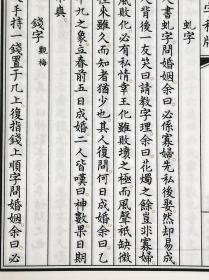 虬字
書虬字問婚姻余曰必係寡婦先私後娶然卻易成
人背後一友笑曰請教字理余曰花燭之餘豈非寡婦
風敗化必有私情幸王化雖敗壞之極而風聲祇缺微
徃來雖久而知者猶少也其人復問何日成婚余曰乙
九之象立春前五日成婚二人皆嘆曰神數果日期
典
錢字 觀梅
手持一錢置于几上復指錢上順字問婚姻余曰必